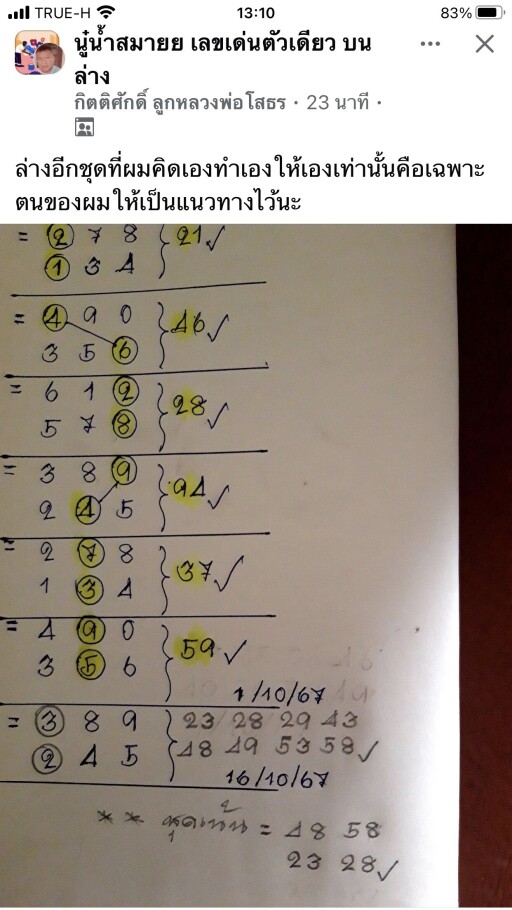 TRUE-H 13:10 83%
นู๋น้ำสมายย เลขเด่นตัวเดียว บน
ล่าง
กิตติศักดิ์ ลูกหลวงพ่อโสธร · 23 นาที ·
ล่างอีกชุดที่ผมคิดเองทำเองให้เองเท่านั้นคือเฉพาะ
ตนของผมให้เป็นแนวทางไว้นะ
= 2 7 8 } 21 ✓
1 3 4
= 4 9 0 } 46 ✓
3 5 6
= 6 1 2 } 28 ✓
5 7 8
= 3 8 9 } 94 ✓
2 4 5
= 2 7 8 } 37 ✓
1 3 4
= 4 9 0 } 59 ✓
3 5 6
1/10/67
= 3 8 9 } 23/28/29 43
2 4 5 48 49 53 58 ✓
16/10/67
** ชุดเน้น = 48 58
23 28 ✓